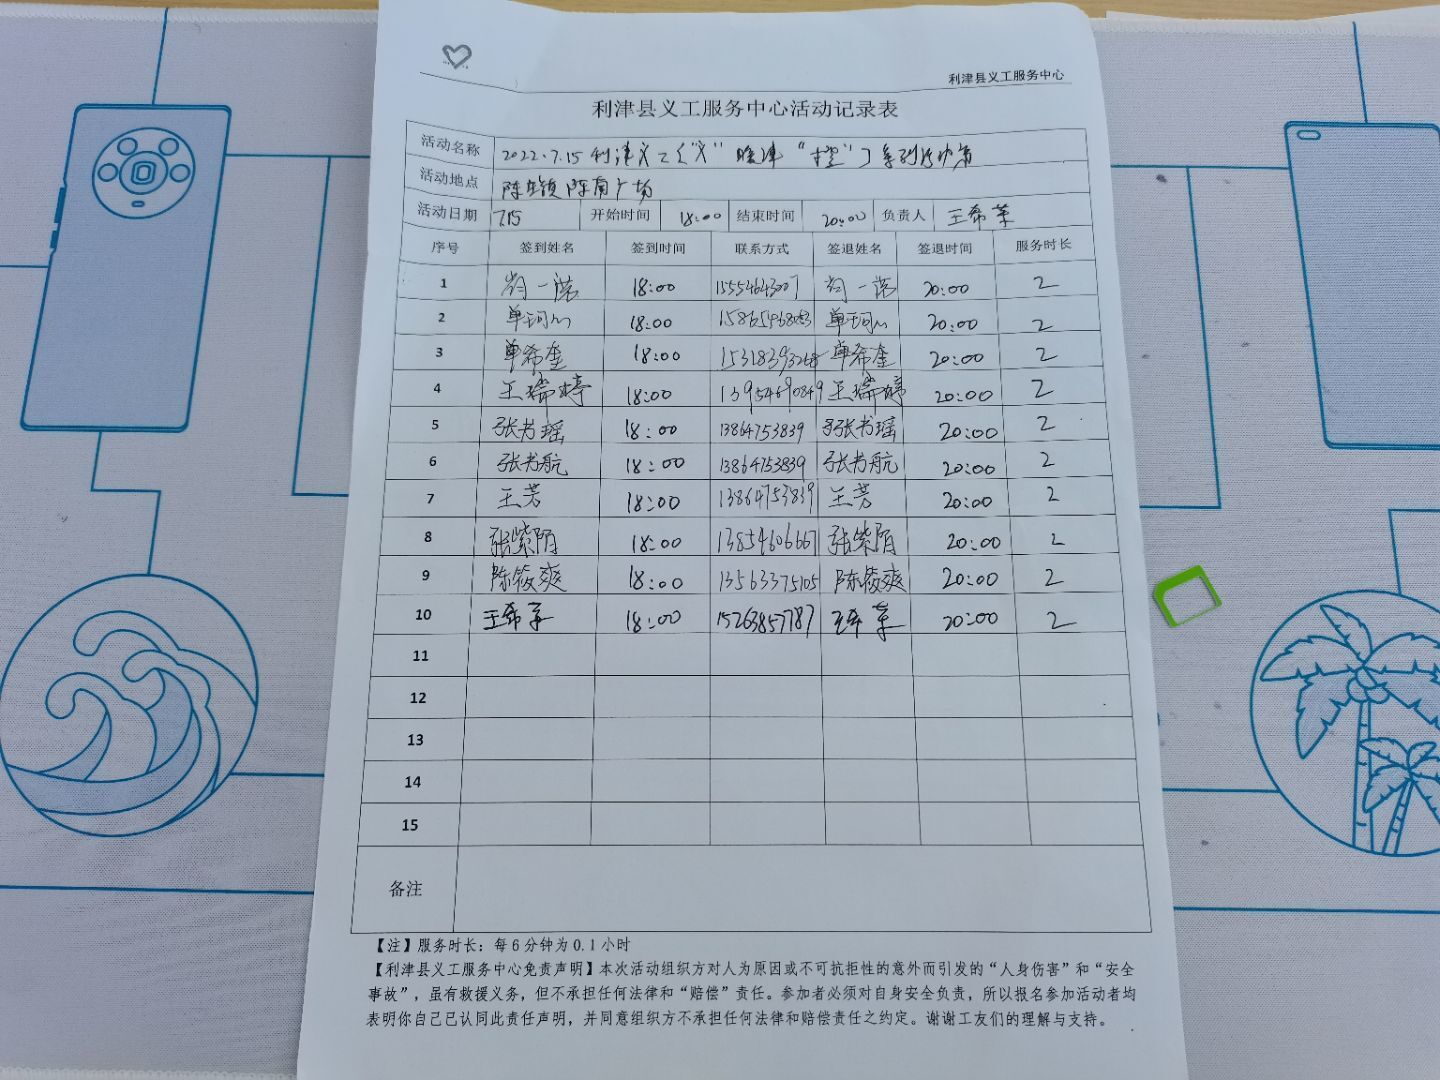 利津县义工服务中心
利津县义工服务中心活动记录表
活动名称 2022.7.15 利津义工 "义" 暖津 系列活动
活动地点 陈庄镇陈南广场
活动日期 7.15 开始时间 18:00 结束时间 20:00 负责人 王希
序号 签到姓名 签到时间 联系方式 签退姓名 签退时间 服务时长
1 一诺 18:00 15554643007 一诺 20:00 2
2 单珂心 18:00 单珂心 20:00 2
3 单希奎 18:00 单希奎 20:00 2
4 王瑞婷 18:00 13954690849 王瑞婷 20:00 2
5 张书瑶 18:00 13864753839 张书瑶 20:00 2
6 张书航 18:00 13864753839 张书航 20:00 2
7 王芳 18:00 13864753839 王芳 20:00 2
8 张紫陌 18:00 13854606667 张紫陌 20:00 2
9 陈筱爽 18:00 13563375105 陈筱爽 20:00 2
10 王希 18:00 15263857787 王希 20:00 2
11
12
13
14
15
备注
【注】服务时长：每6分钟为0.1小时
【利津县义工服务中心免责声明】本次活动组织方对人为原因或不可抗拒性的意外而引发的“人身伤害”和“安全
事故”，虽有救援义务，但不承担任何法律和“赔偿”责任。参加者必须对自身安全负责，所以报名参加活动者均
表明你自己已认同此责任声明，并同意组织方不承担任何法律和赔偿责任之约定。谢谢工友们的理解与支持。